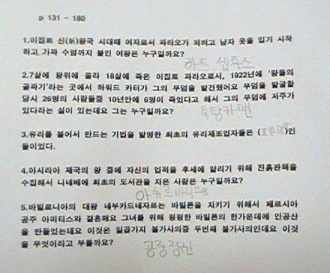 p 131 - 180
1.이집트 신(新)왕국 시대때 여자로서 파라오가 되려고 남자 옷을 입기 시작
하고 가짜 수염까지 붙인 여왕은 누구일까요?
하트 셉투스
2.7살에 왕위에 올라 18살에 죽은 이집트 파라오로서, 1922년에 '왕들의
골짜기'라는 곳에서 하워드 카터가 그의 무덤을 발견했어요 무덤을 발굴할
당시 26명의 사람들중 10년안에 6명이 죽었다고 해서 그의 무덤에 저주가
있다라는 설이 있는데요 그는 누구일까요?
투탕카멘
3.유리를 불어서 만드는 기법을 발명한 최초의 유리제조업자들은 ( )인
들이었다.
4.아시리아 제국의 왕 중에 자신의 업적을 후세에 알리기 위해 진흙판책을
수집해서 니네베에 최초의 도서관을 지은 사람은 누구일까요?
5.바빌로니아의 대왕 네부카드네자르는 바빌론을 지키기 위해서 페르시아
공주 아미티스와 결혼해요 그녀를 위해 평평한 바빌론의 한가운데에 인공산
을 만들었는데요 이것은 일곱가지 불가사의중 두번째 불가사의인데요 이것
을 무엇이라고 부를까요?
공중정원